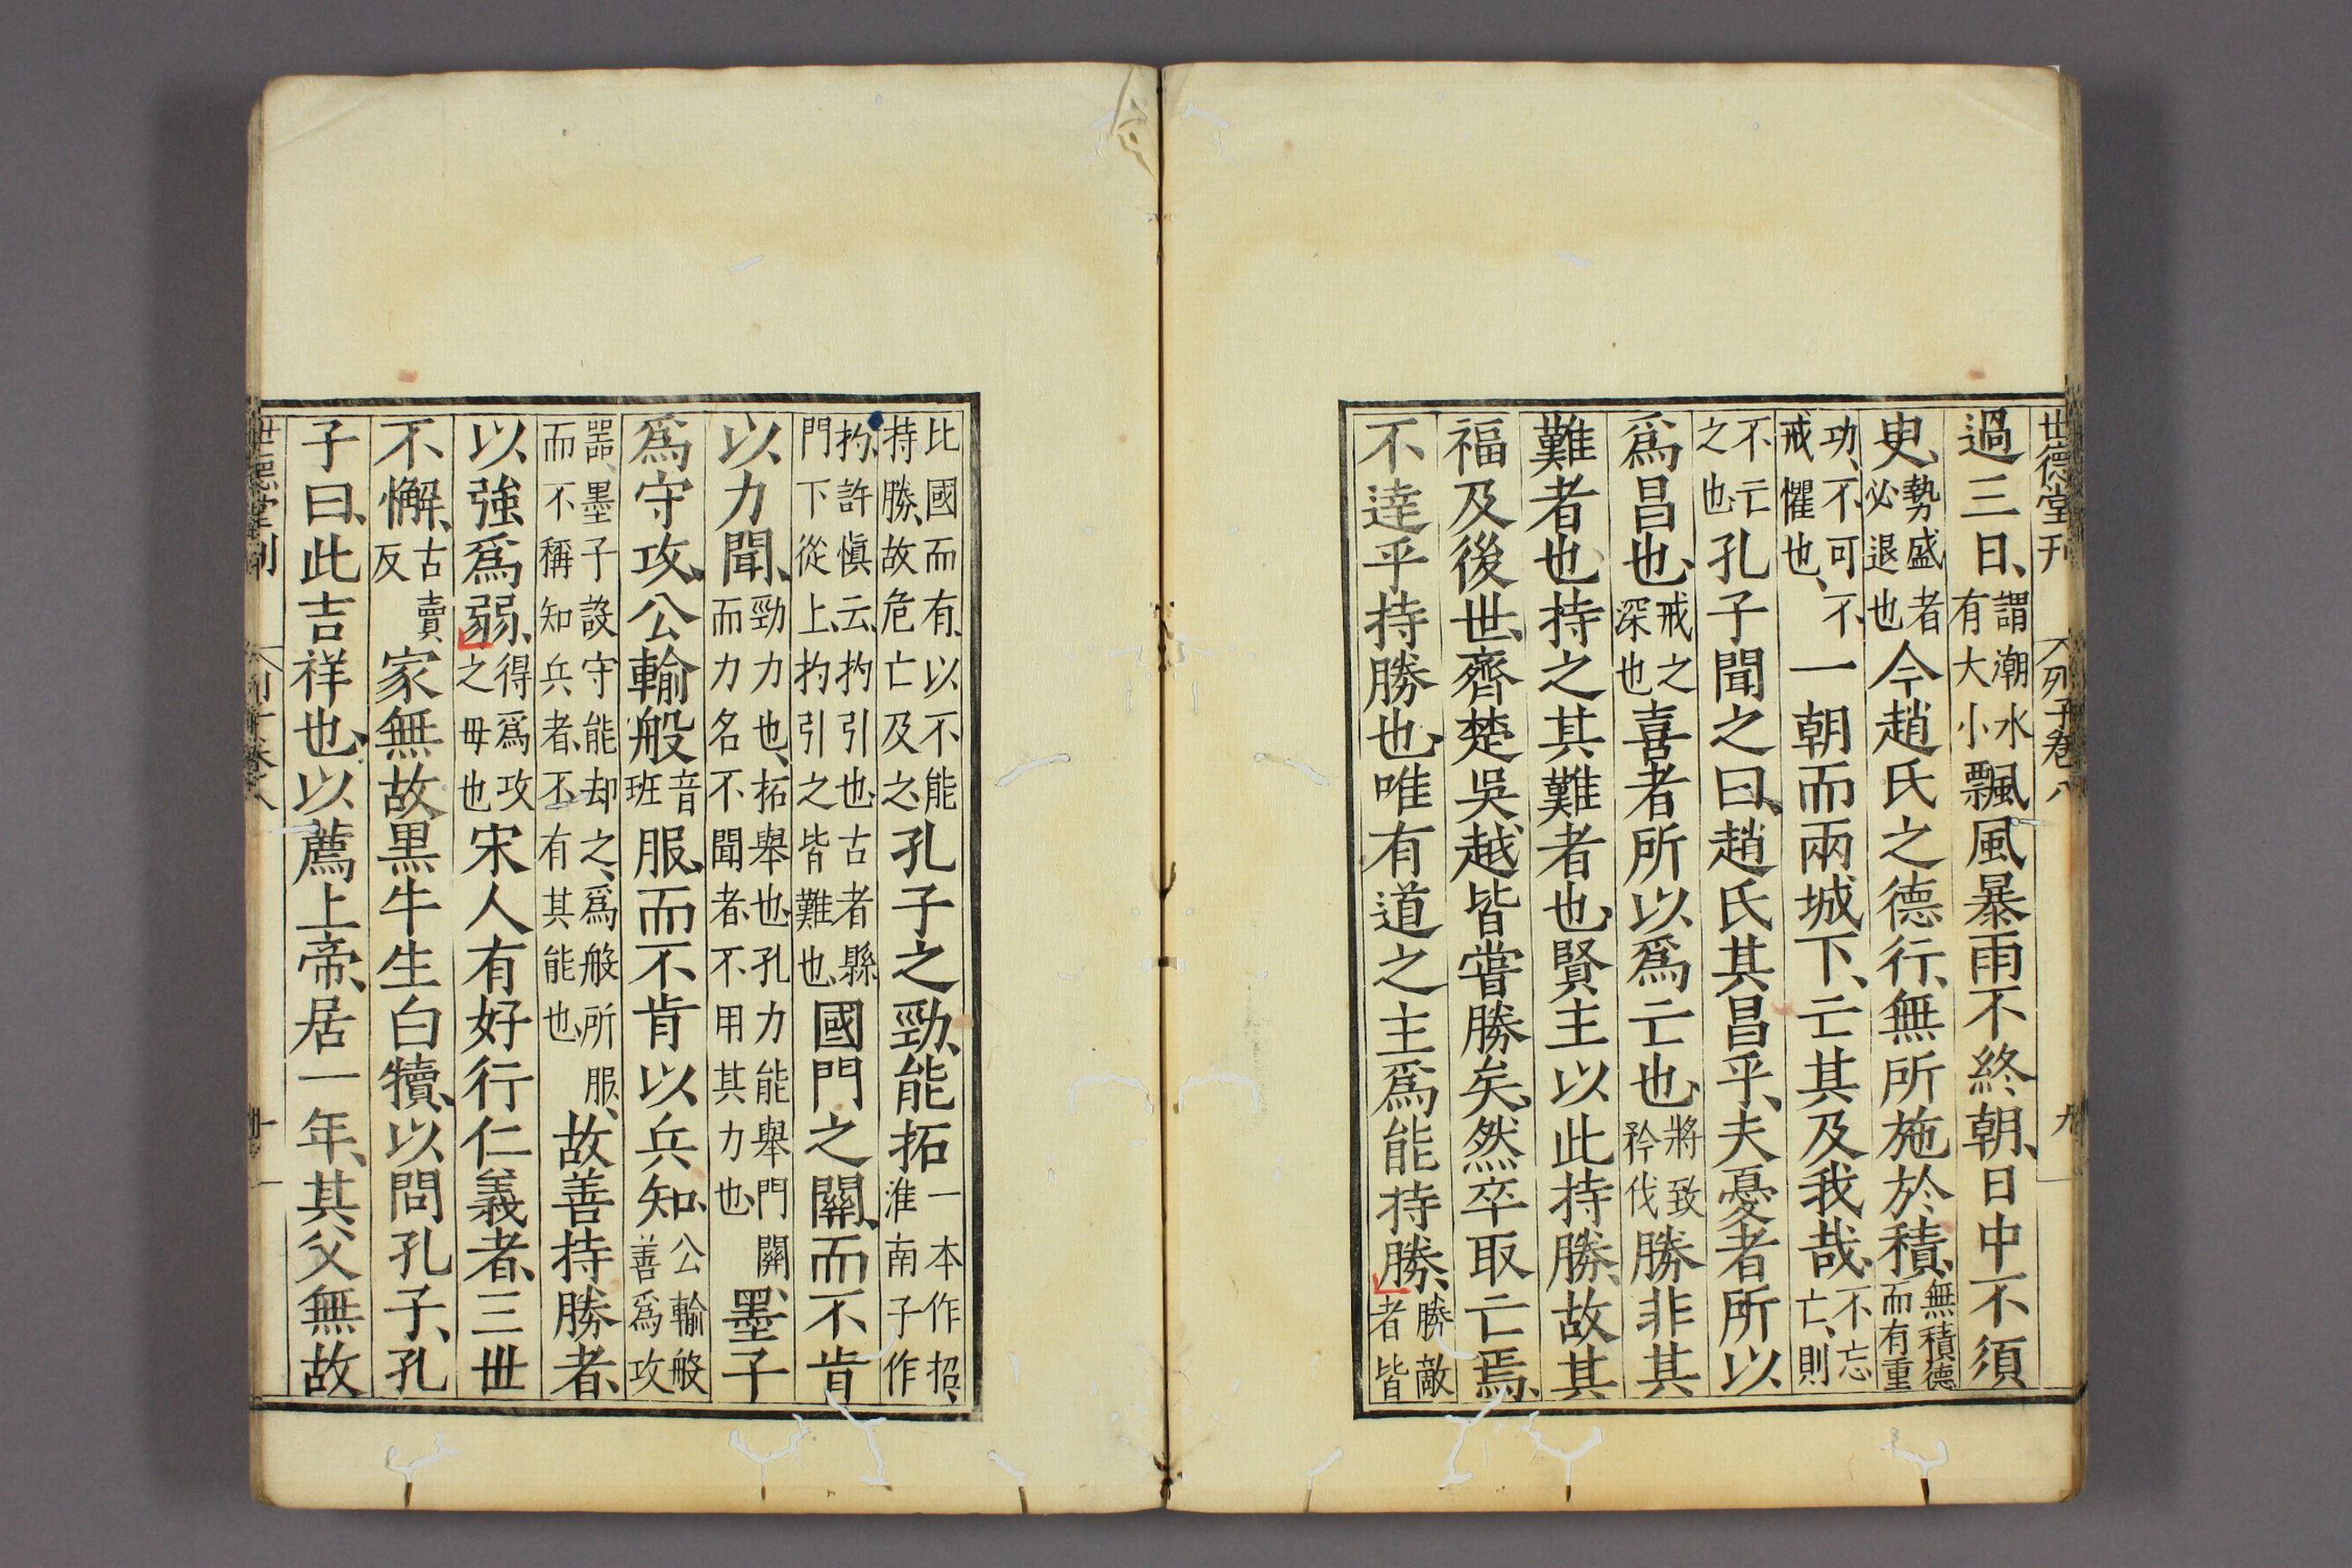 世德堂刊 列子卷八 九
過三日、謂潮水有大小飄風暴雨不終朝、日中不須
史、勢盛者必退也今趙氏之德行、無所施於積、無積德而有重
功、不可不戒懼也、一朝而兩城下、亡其及我哉、不忘亡、則
不亡之也孔子聞之曰、趙氏其昌乎、夫憂者所以
爲昌也、戒之深也喜者所以爲亡也、將致矜伐勝非其
難者也持之其難者也、賢主以此持勝、故其
福及後世、齊楚吳越皆嘗勝矣、然卒取亡焉、
不達乎持勝也、唯有道之主爲能持勝、勝敵者皆
比國而有、以不能持勝、故危亡及之、孔子之勁、能拓一本作招、淮南子作
扚、許慎云、扚引也、古者縣門下從上、扚引之皆難也、國門之關、而不肯
以力聞、勁力也、拓舉也、孔力能舉門關、而力名不聞者、不用其力也、墨子
爲守攻、公輸般音班服、而不肯以兵知、公輸般善爲攻
器、墨子設守能却之、爲般所服、而不稱知兵者、不有其能也、故善持勝者、
以強爲弱、得爲攻之毋也宋人有好行仁義者、三世
不懈、古賣反家無故黒牛生白犢、以問孔子、孔
子曰、此吉祥也、以薦上帝、居一年、其父無故